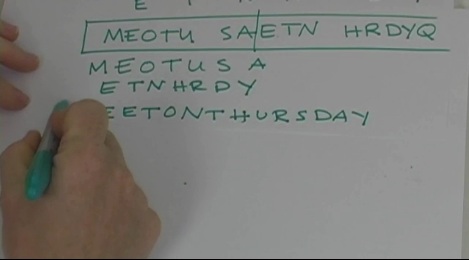 E
MEOTU SAETN HRDYQ
MEOTUSA
ETNHRDY
EETONTHURSDAY